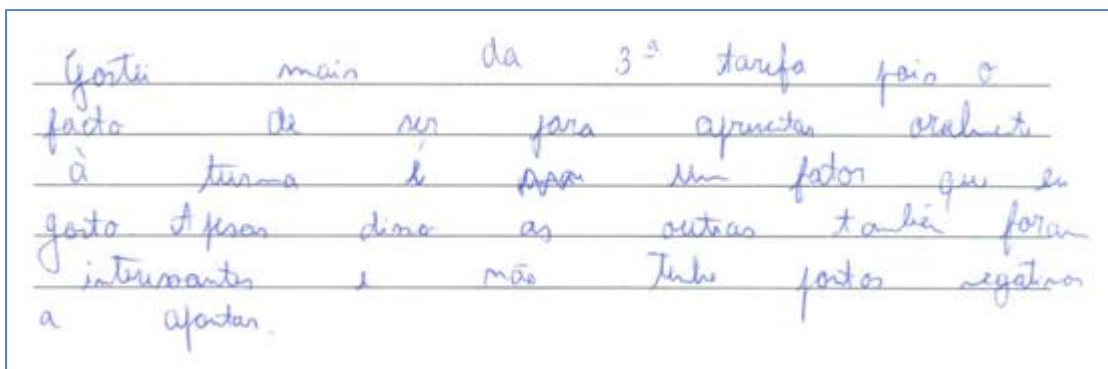 Gostei mais da 3ª tarefa pois o
facto de ser para apresentar oralmente
à turma é um fator que eu
gosto. Apesar disso as outras também foram
interessantes e não tenho pontos negativos
a apontar.